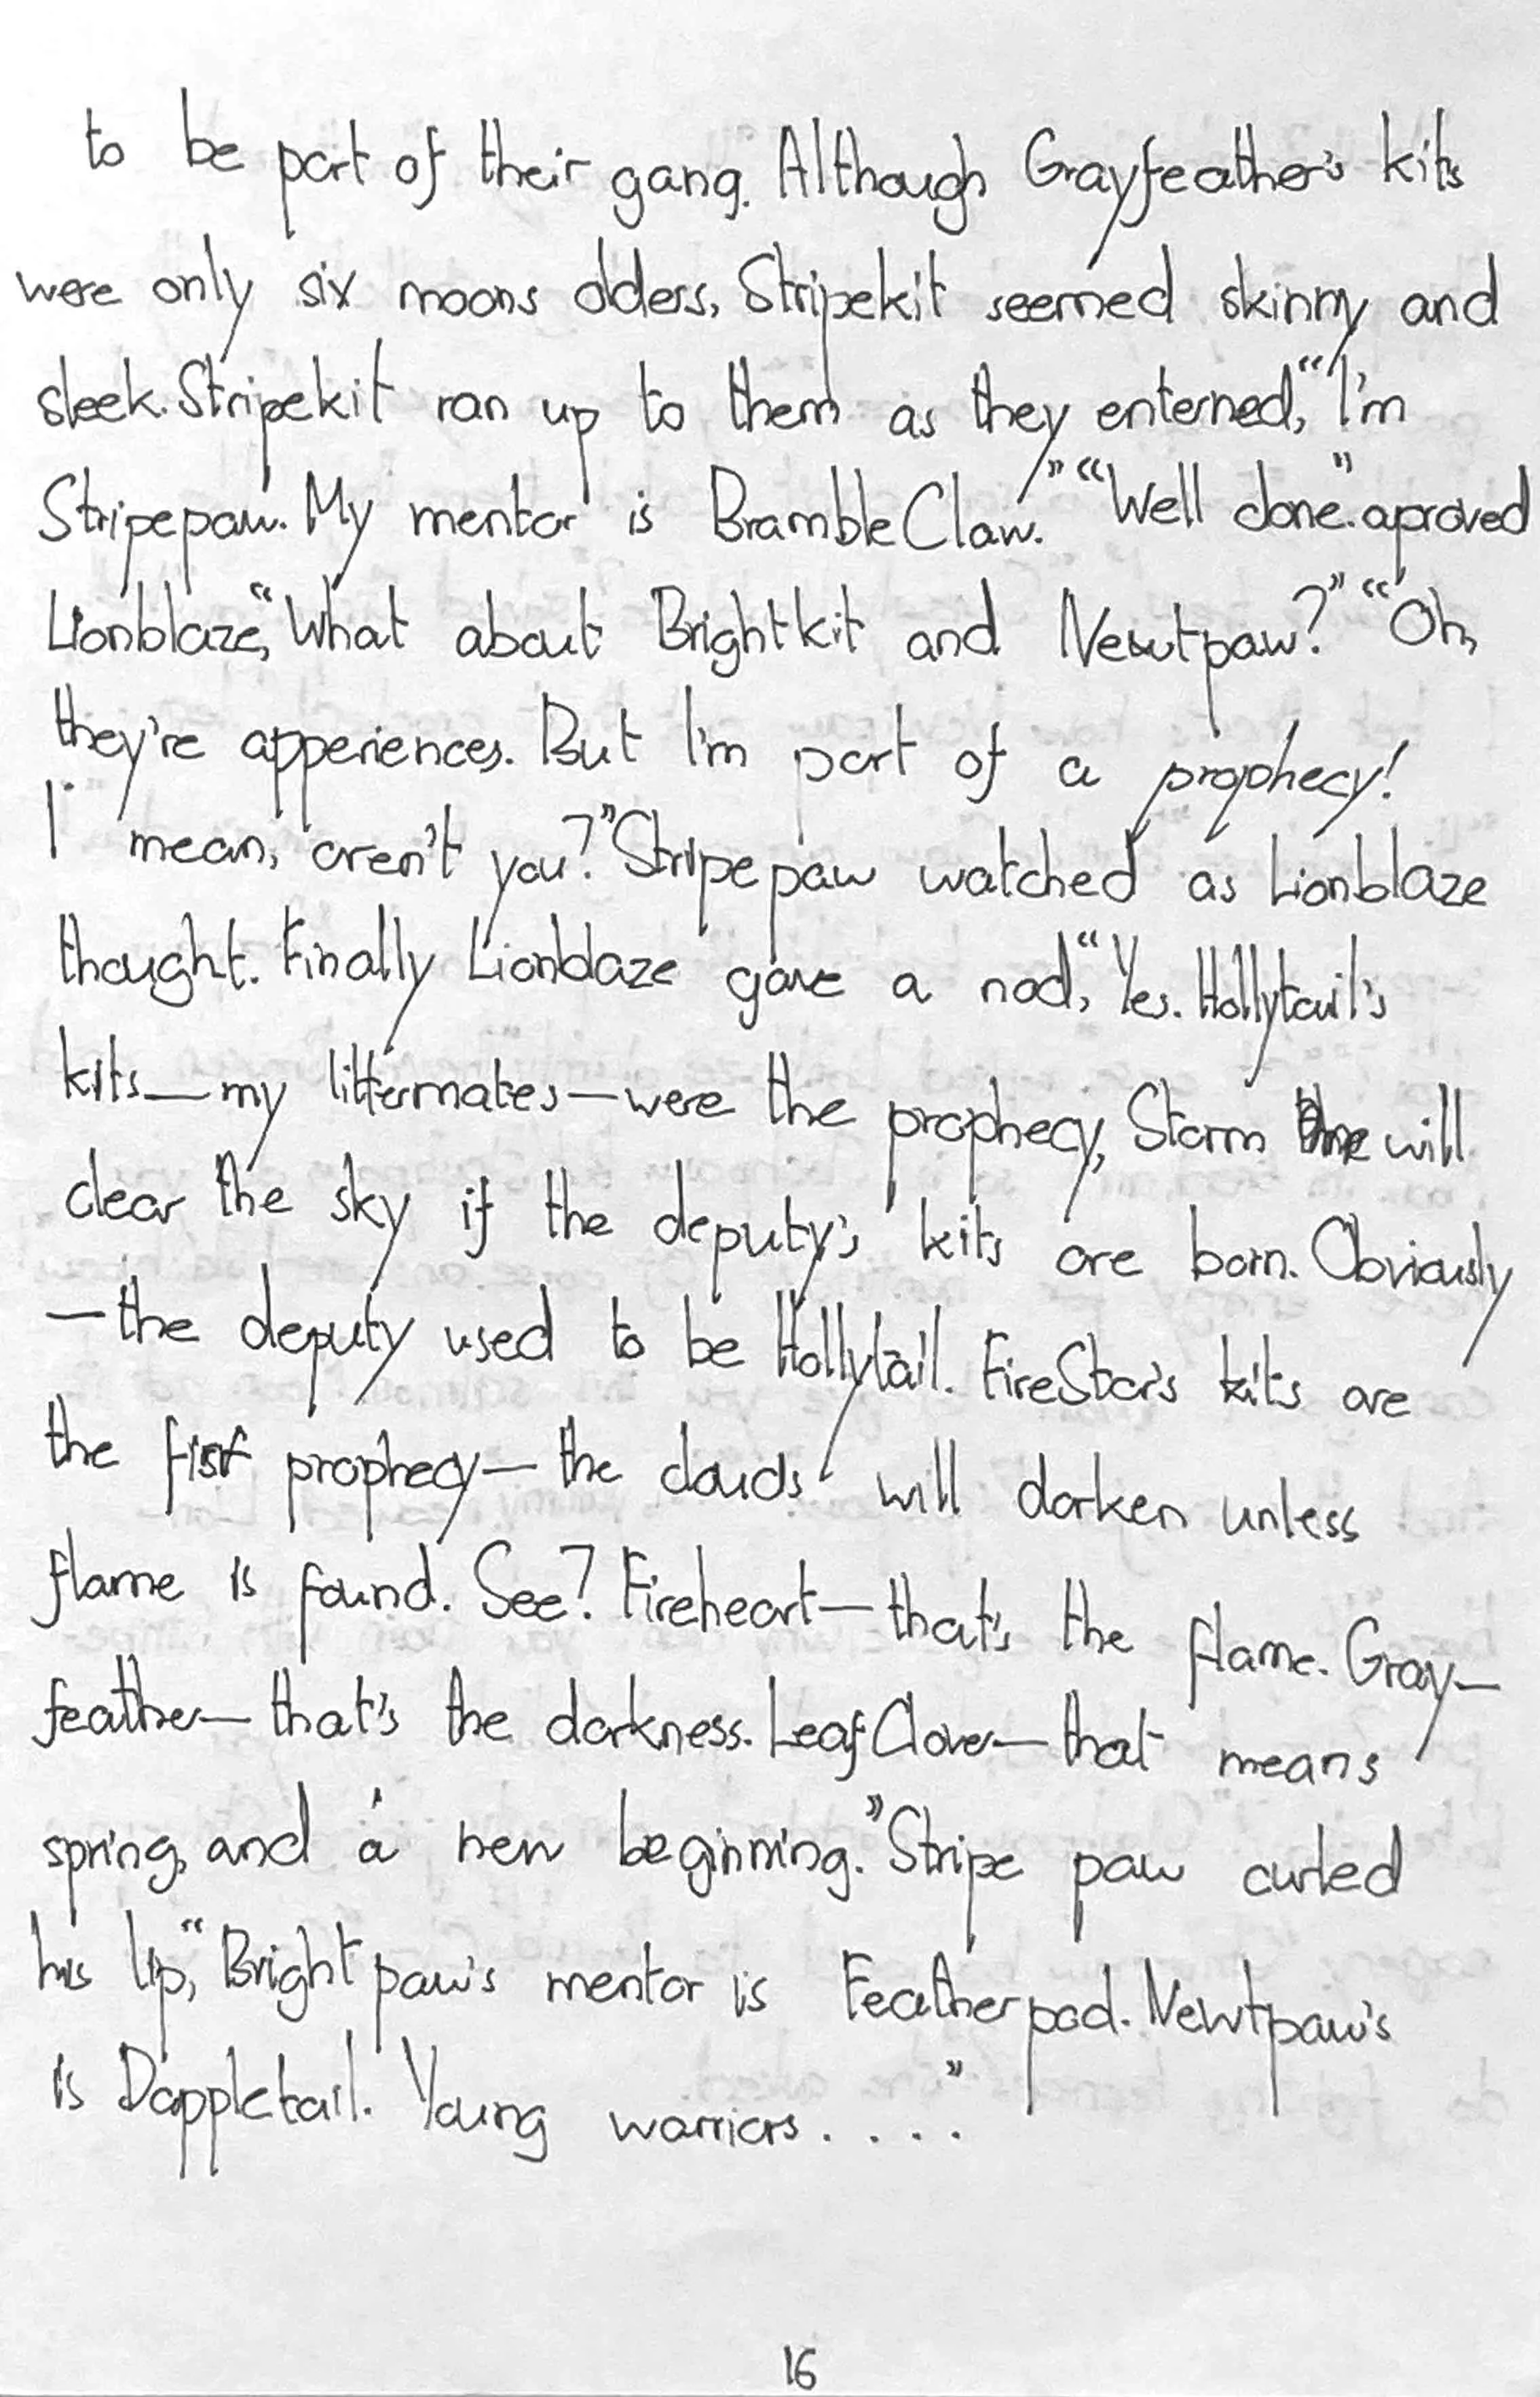 to be part of their gang. Although Grayfeather's kits
were only six moons olders, Stripekit seemed skinny and
sleek. Stripekit ran up to them as they enterned, "I'm
Stripepaw. My mentor is BrambleClaw." "Well done." aproved
Lionblaze, "What about Brightkit and Newtpaw?" "Oh,
they're apperiences. But I'm part of a prophecy!
I mean, aren't you?" Stripepaw watched as Lionblaze
thought. Finally Lionblaze gave a nod, "Yes. Hollytail's
kits—my littermates—were the prophecy, Storm will
clear the sky if the deputy's kits are born. Obviously
—the deputy used to be Hollytail. FireStar's kits are
the fisrt prophecy—the clouds will darken unless
flame is found. See? Fireheart—that's the flame. Gray—
feather—that's the darkness. LeafClover—that means
spring, and a new beginning." Stripe paw curled
his lip, "Bright paw's mentor is Featherpad. Newtpaw's
is Dappletail. Young warriors . . . ."
16